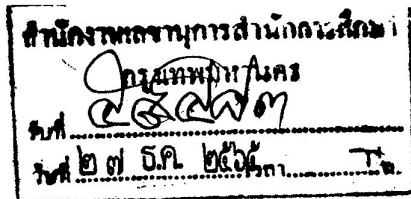 สำนักงานเลขานุการสำนักการศึกษา
กรุงเทพมหานคร
รับที่
วันที่ ๒๗ ธ.ค. ๒๕๖๕ เวลา น.